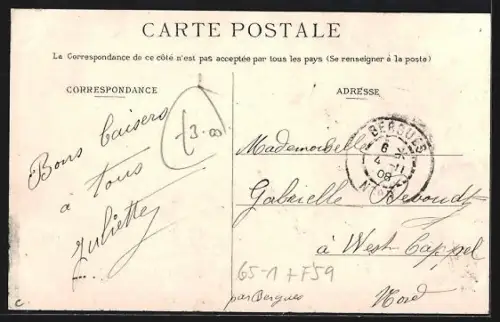 CARTE POSTALE
La Correspondance de ce côté n'est pas acceptée par tous les pays (Se renseigner à la poste)
CORRESPONDANCE
Bons baisers
à
tous
Juliette
£3-00
ADRESSE
Mademoiselle
Gabrielle
à West-Cappel
par Bergues
Nord
BERGUES
4 - 11
08
65-1 + F59
c